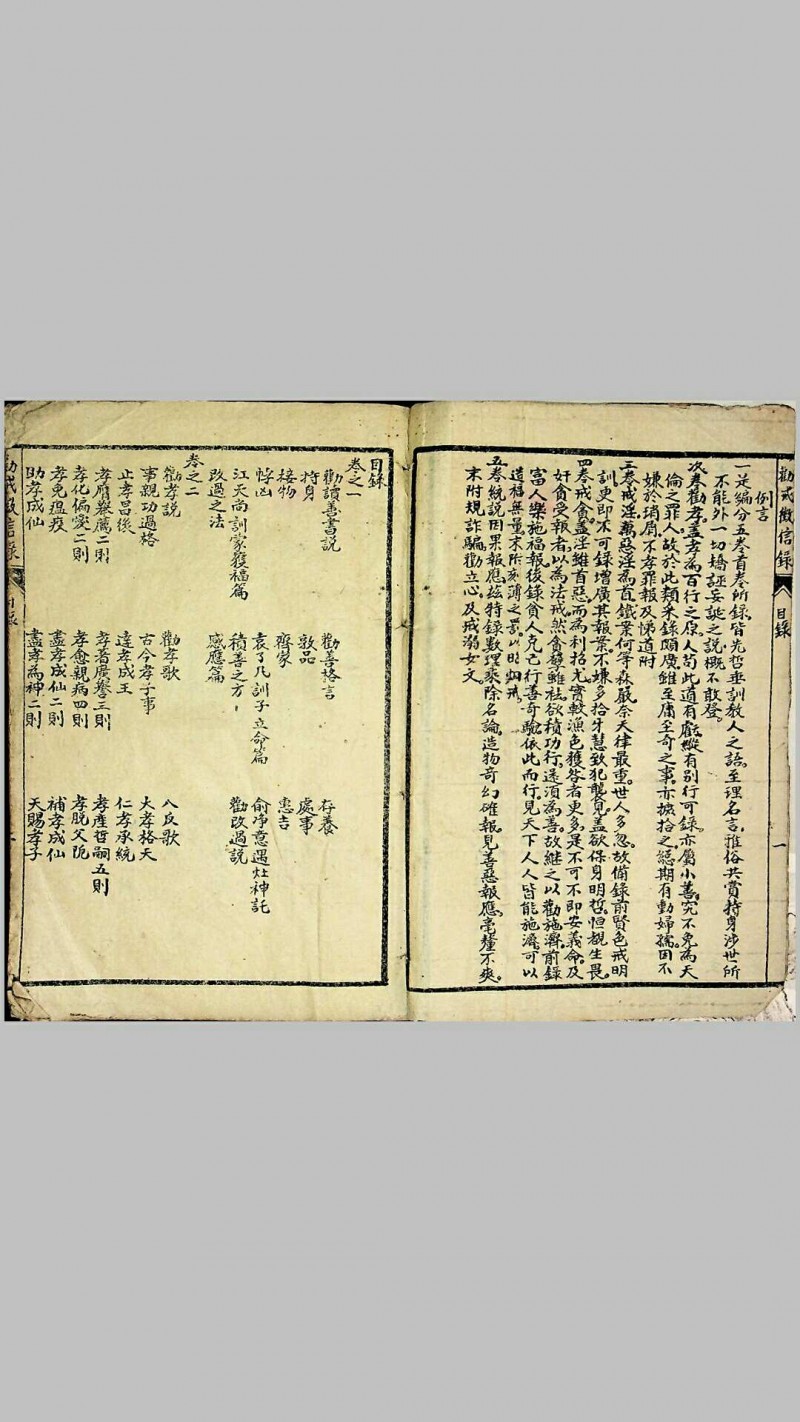 勸戒徵信錄
目錄
一
例言
一是編分五卷首卷所錄皆先哲垂訓教人之語至理名言雅俗共賞持身涉世所
不能外一切矯誣妄誕之說概不敢登
次卷勸孝蓋孝為百行之原人苟此道有虧縱有別行可錄亦屬小善究不免為天
倫之罪人故於此類采錄頗廣雖至庸至奇之事亦摭拾之總期有動婦孺因不
嫌於瑣屑不孝罪報及悌道附
三卷戒淫萬惡淫為首鐵案何等森嚴奈天律最重世人多忽故備錄前賢色戒明
訓更即不可錄增廣其報案不嫌多拾牙慧致犯襲見蓋欲保身明哲恒覩生畏
四卷戒貪蓋淫雖首惡而為利招尤實較漁色獲咎者更多是不可不即安義命及
奸貪受報者以為法戒然貪孽雖祛欲積功行遂須為善故繼之以勸施濟前錄
富人樂施福報後錄貧人克己行善奇驗依此而行見天下人人皆能施濟可以
造福無量末附刻薄之罰以昭烱戒
五卷統說因果報應玆特錄數理乘除名論造物奇幻確報見善惡報應毫釐不爽
末附規詐騙勸立心及戒溺女文
目錄
卷之一
勸讀善書說 勸善格言 存養
持身 敦品 處事
接物 齊家 惠吉
悖凶 袁了凡訓子立命篇 俞淨意遇灶神記
江天尚訓蒙獲福篇 積善之方 勸改過說
改過之法 感應篇
卷之二
勸孝說 勸孝歌 八反歌
事親功過格 古今孝子事 大孝格天
止孝昌後 達孝成王 仁孝承統
孝膺舉薦二則 孝著廣譽三則 孝產哲嗣五則
孝化偏愛二則 孝愈親病四則 孝脫父阨
孝免瘟疫 盡孝成仙二則 補孝成仙
助孝成仙 盡孝為神二則 天賜孝子
勸戒徵信錄
目錄